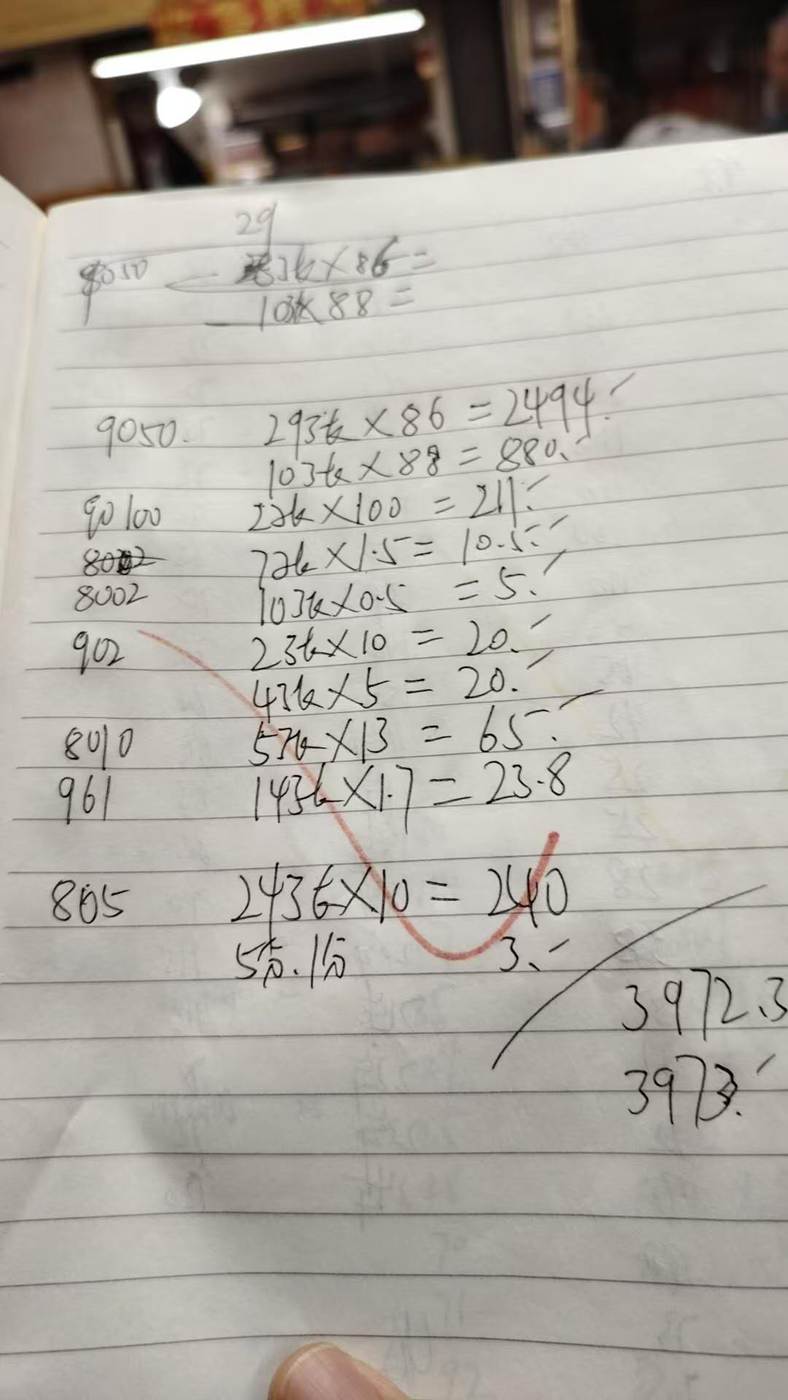 29
9050 张×86=
10张×88=
9050. 29张×86=2494.-
10张×88=880.-
90100 2张×100=211.-
8002 7张×1.5=10.5.-
8002 10张×0.5=5.-
902 2张×10=20.-
4张×5=20.-
8010 5张×13=65.-
961 14张×1.7=23.8
805 24张×10=240
5分.1分 3.-
3972.3
3973.-